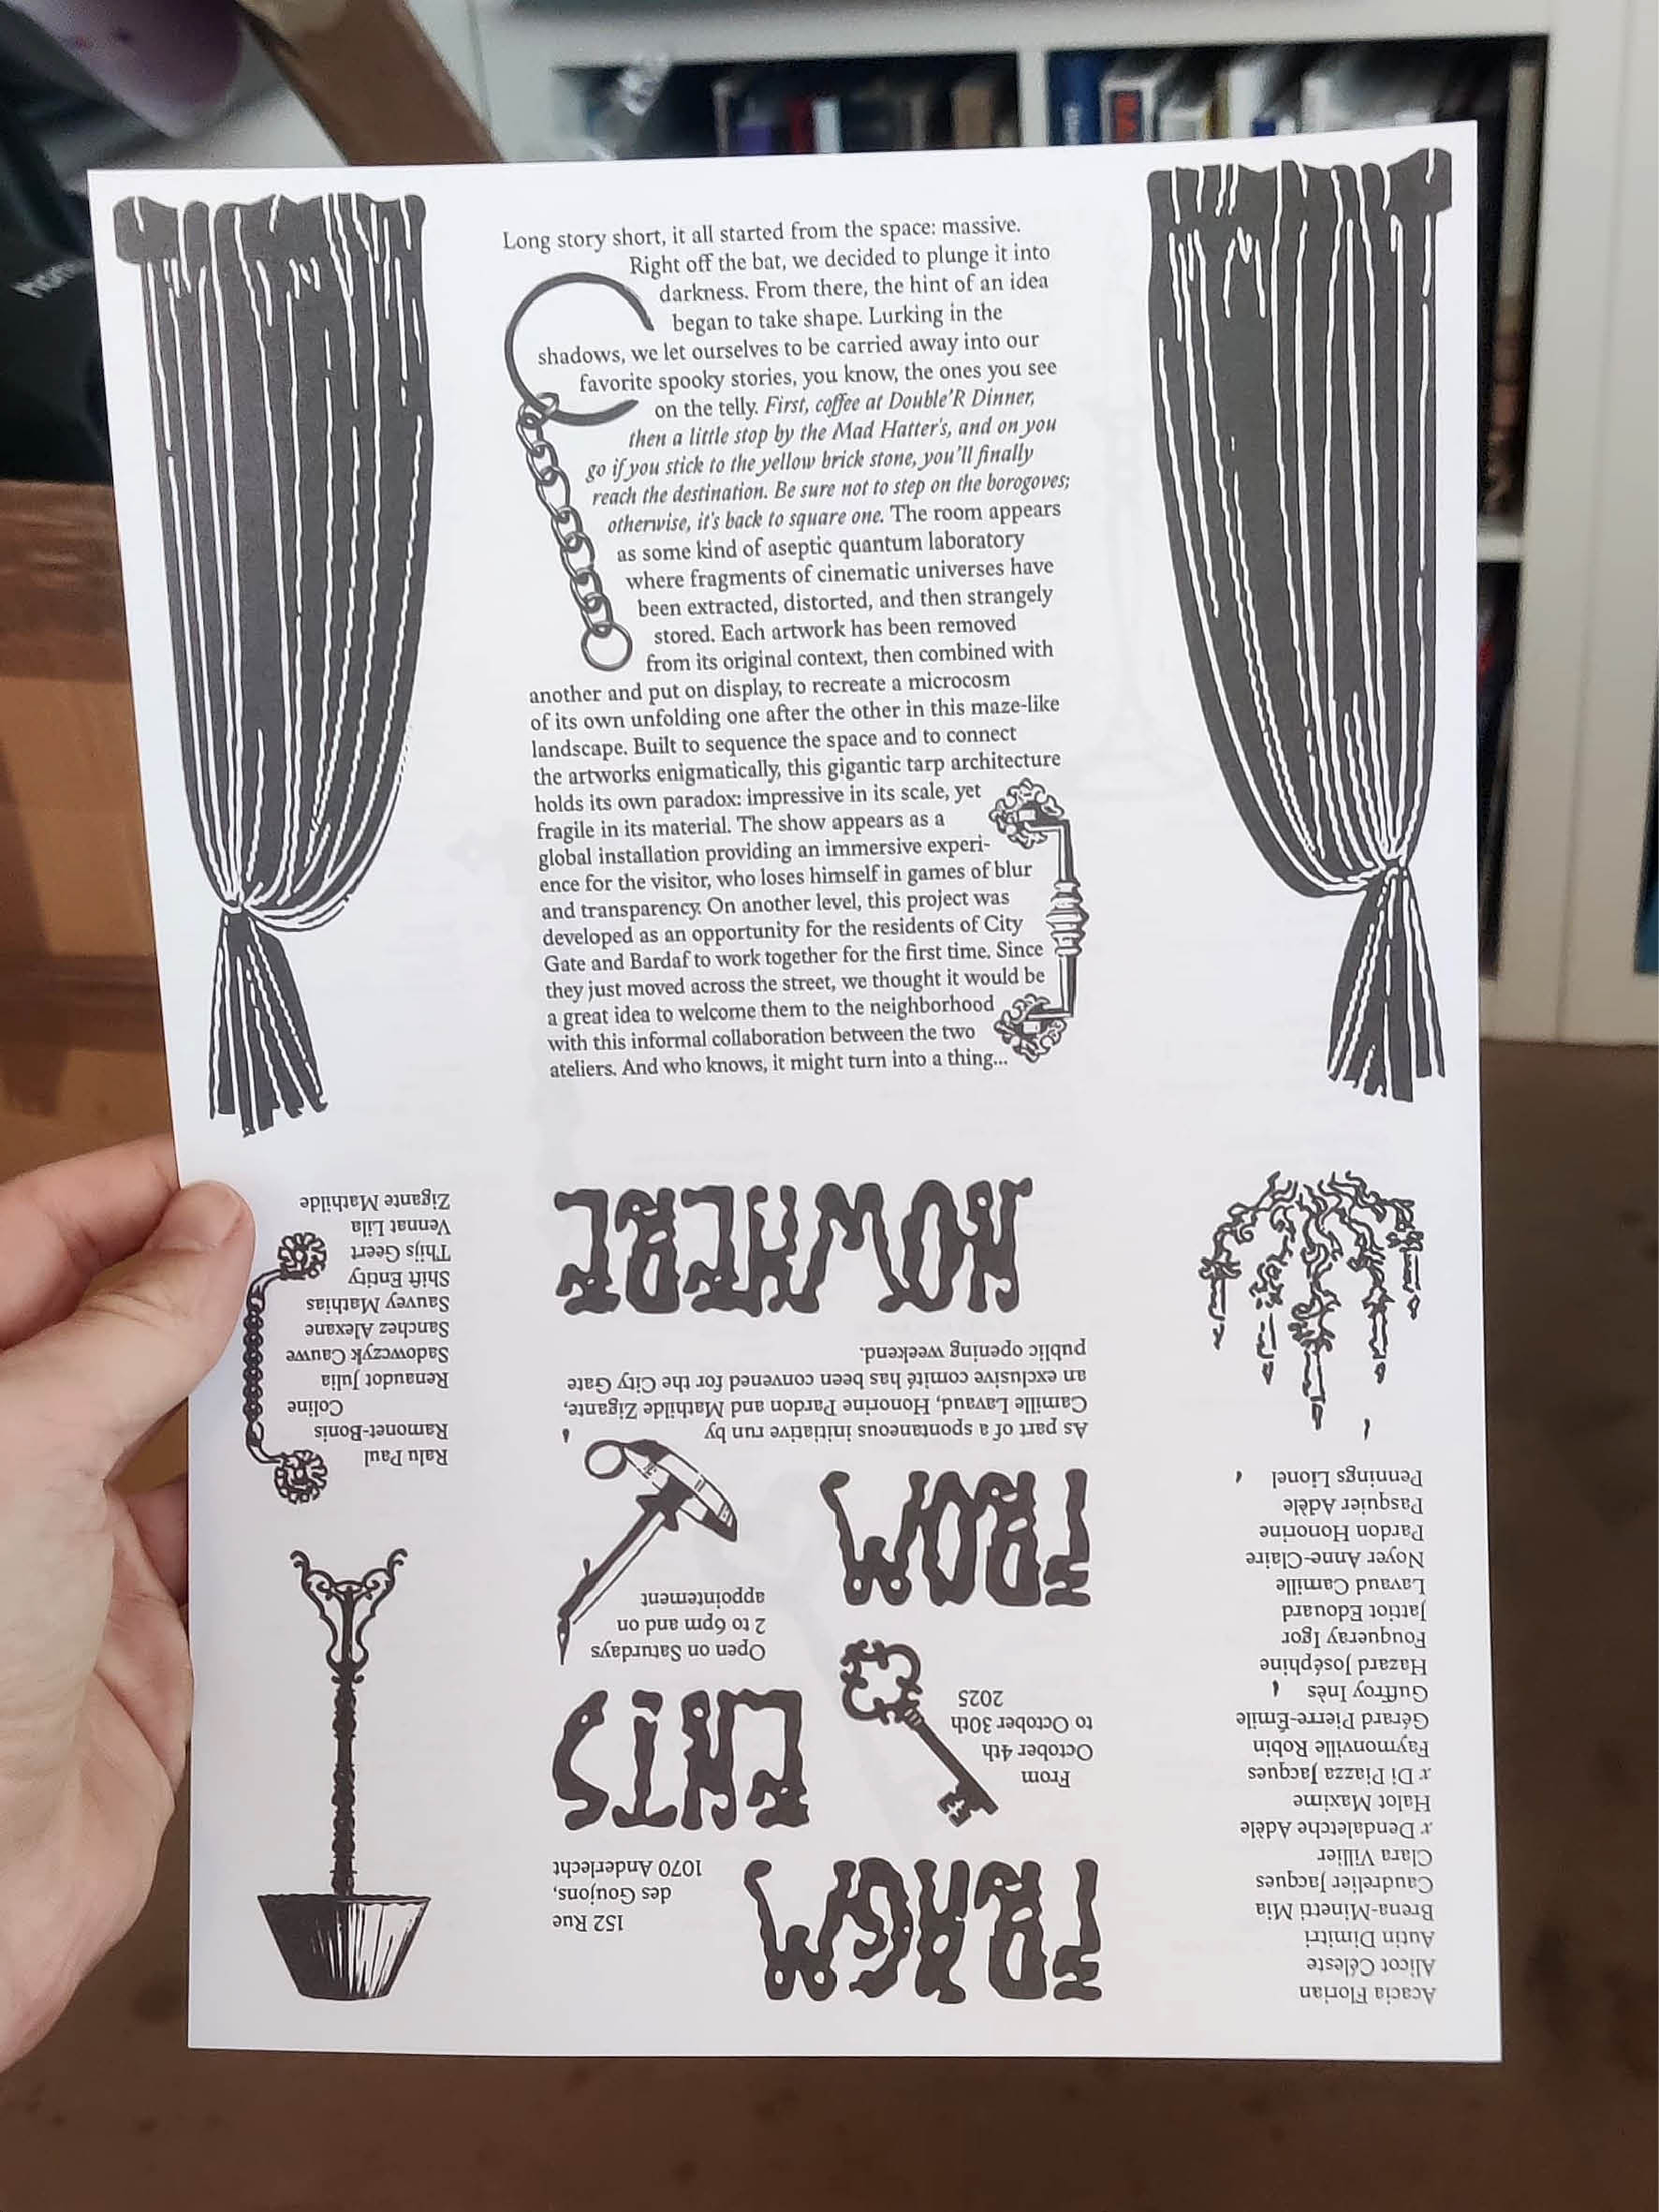 Long story short, it all started from the space: massive.
Right off the bat, we decided to plunge it into
darkness. From there, the hint of an idea
began to take shape. Lurking in the
shadows, we let ourselves to be carried away into our
favorite spooky stories, you know, the ones you see
on the telly. First, coffee at Double'R Dinner,
then a little stop by the Mad Hatter's, and on you
go if you stick to the yellow brick stone, you'll finally
reach the destination. Be sure not to step on the borogoves;
otherwise, it's back to square one. The room appears
as some kind of aseptic quantum laboratory
where fragments of cinematic universes have
been extracted, distorted, and then strangely
stored. Each artwork has been removed
from its original context, then combined with
another and put on display, to recreate a microcosm
of its own unfolding one after the other in this maze-like
landscape. Built to sequence the space and to connect
the artworks enigmatically, this gigantic tarp architecture
holds its own paradox: impressive in its scale, yet
fragile in its material. The show appears as a
global installation providing an immersive experi-
ence for the visitor, who loses himself in games of blur
and transparency. On another level, this project was
developed as an opportunity for the residents of City
Gate and Bardaf to work together for the first time. Since
they just moved across the street, we thought it would be
a great idea to welcome them to the neighborhood
with this informal collaboration between the two
ateliers. And who knows, it might turn into a thing...
Acacia Florian
Alicot Céleste
Autin Dimitri
Brena-Minetti Mia
Caudrelier Jacques
Clara Villier
x Dendaletche Adèle
Halot Maxime
x Di Piazza Jacques
Faymonville Robin
Gérard Pierre-Émile
Guffroy Inès
Hazard Joséphine
Fouqueray Igor
Jattiot Edouard
Lavaud Camille
Noyer Anne-Claire
Pardon Honorine
Pasquier Adèle
Pennings Lionel
FRAGM
152 Rue
des Goujons,
1070 Anderlecht
From
October 4th
to October 30th
2025
ENTS
Open on Saturdays
2 to 6pm and on
appointement
FROM
As part of a spontaneous initiative run by
Camille Lavaud, Honorine Pardon and Mathilde Zigante,
an exclusive comité has been convened for the City Gate
public opening weekend.
NOWHERE
Ralu Paul
Ramonet-Bonis
Coline
Renaudot Julia
Sadowczyk Cauwe
Sanchez Alexane
Sauvey Mathias
Shift Entity
Thijs Geert
Vennat Lila
Zigante Mathilde